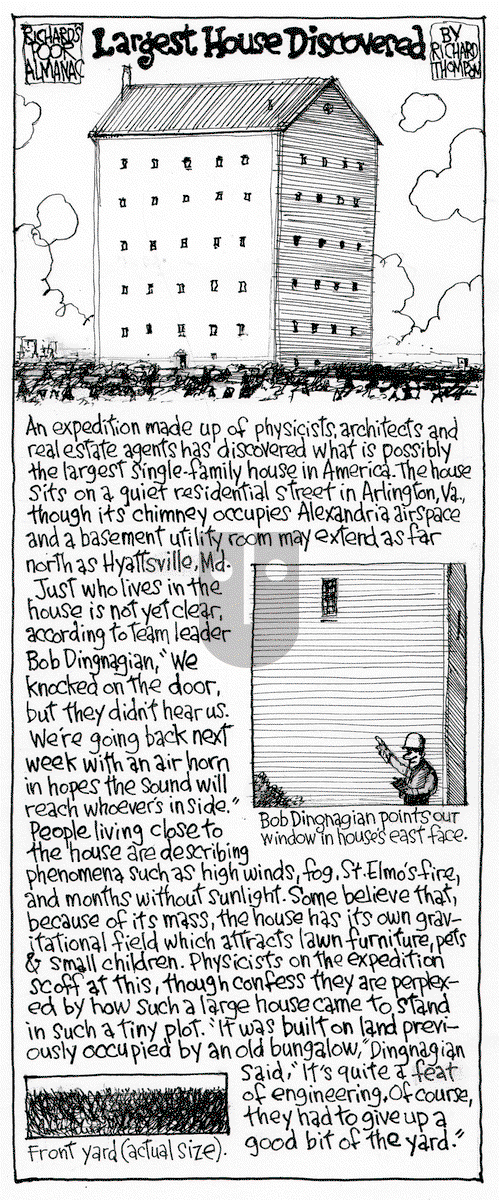 RICHARD'S
POOR
ALMANAC
Largest House Discovered
BY
RICHARD
THOMPSON
An expedition made up of physicists, architects and
real estate agents has discovered what is possibly
the largest single-family house in America. The house
sits on a quiet residential street in Arlington, Va.,
though its chimney occupies Alexandria airspace
and a basement utility room may extend as far
north as Hyattsville, Md.
Just who lives in the
house is not yet clear,
according to team leader
Bob Dingnagian, "We
knocked on the door,
but they didn't hear us.
We're going back next
week with an air horn
in hopes the sound will
reach whoever's inside."
People living close to
the house are describing
phenomena such as high winds, fog, St. Elmo's-fire,
and months without sunlight. Some believe that,
because of its mass, the house has its own grav-
itational field which attracts lawn furniture, pets
& small children. Physicists on the expedition
scoff at this, though confess they are perplex-
ed by how such a large house came to stand
in such a tiny plot. "It was built on land previ-
ously occupied by an old bungalow," Dingnagian
said, "It's quite a feat
of engineering. Of course,
they had to give up a
good bit of the yard."
Bob Dingnagian points out
window in house's east face.
Front yard (actual size).